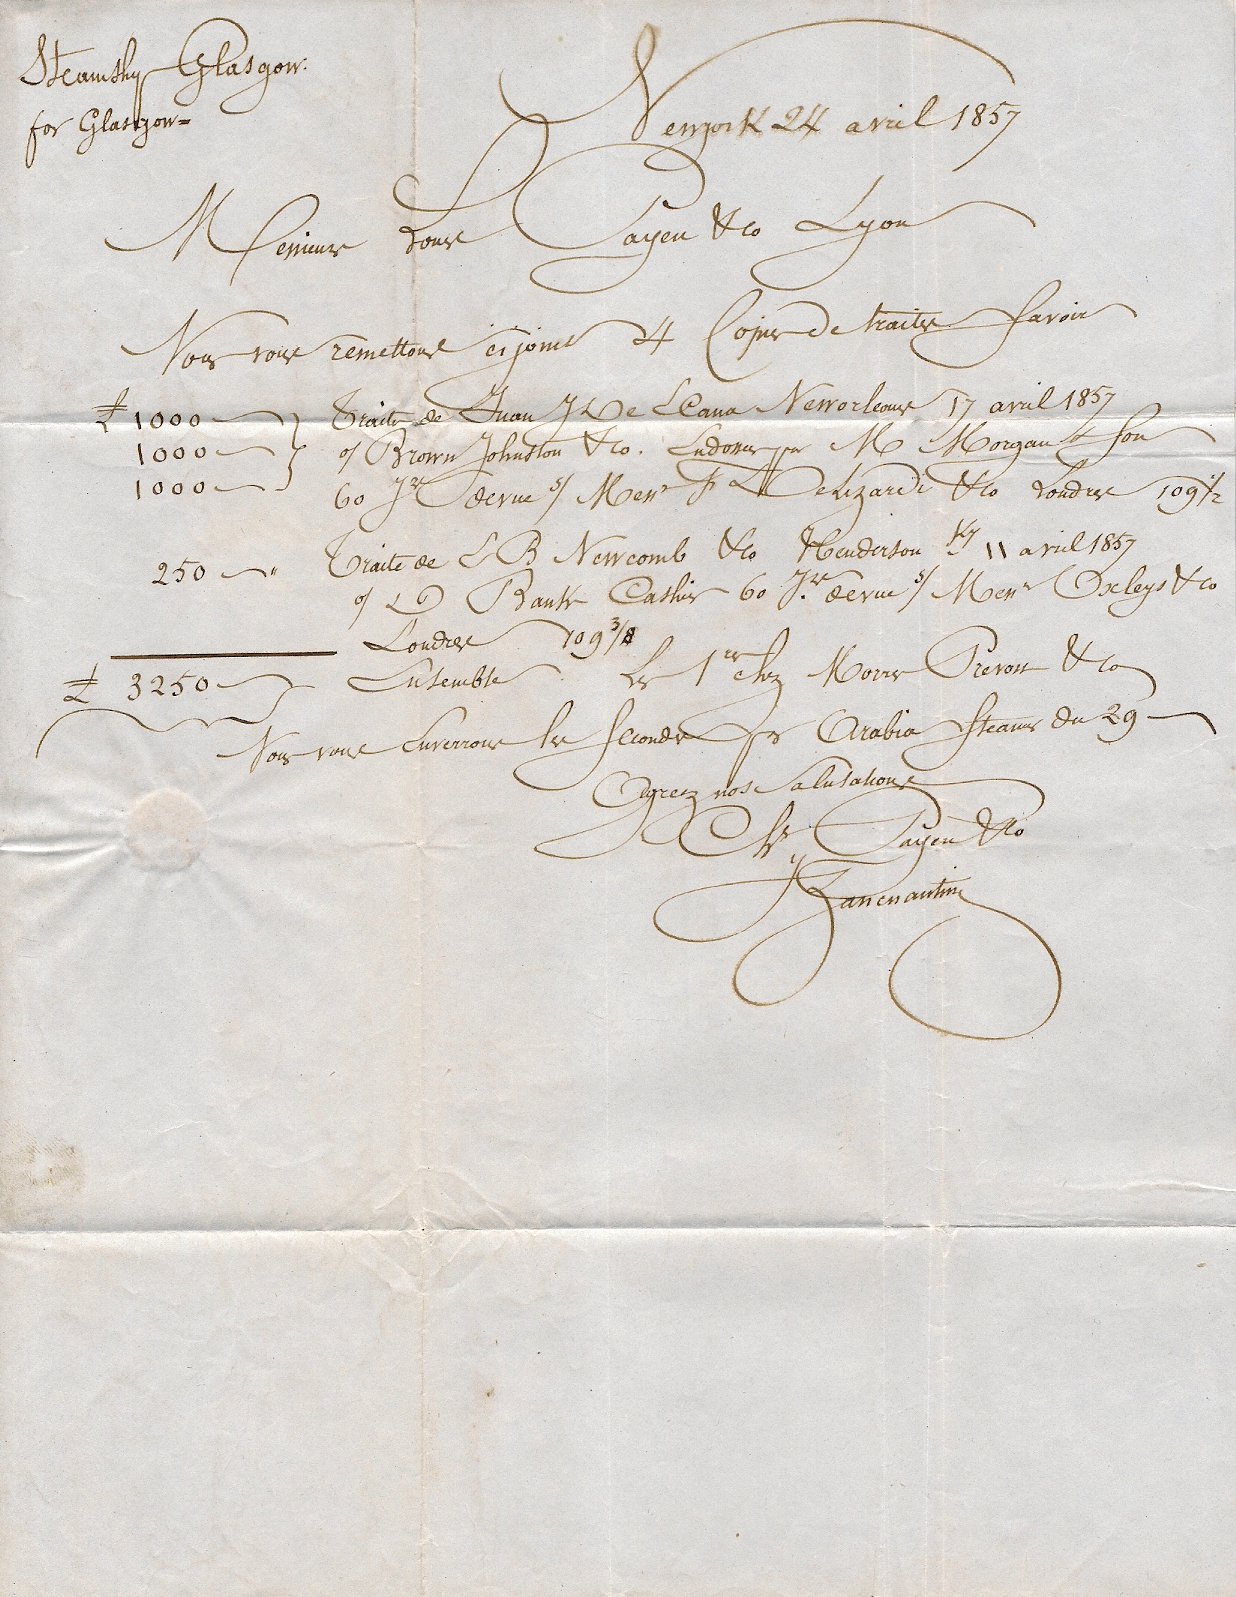 Steamship Glasgow.
for Glasgow=
Newyork 24 avril 1857
Messieurs Louis Payen & Co Lyon
Nous vous remettons cijoint 4 Copies de traites Savoir
£ 1000 Traite de Juan Y De Egana Neworleans 17 avril 1857
1000 o/ Brown Johnston & Co. Endossées par M Morgan & Son
1000 60 Jrs de vue s/ Messrs F De Lizardi & Co Londres 109 1/2
250 " Traite de L B Newcomb & Co Henderson Ky 11 avril 1857
o/ D Bank Cashier 60 Jrs de vue s/ Messrs Oxleys & Co
Londres 109 3/8
£ 3250 Ensemble Les 1res chez Morris Prevost & Co
Nous vous enverrons les secondes pr Arabia Steamer du 29
Agréez nos Salutations
Chs Payen & Co